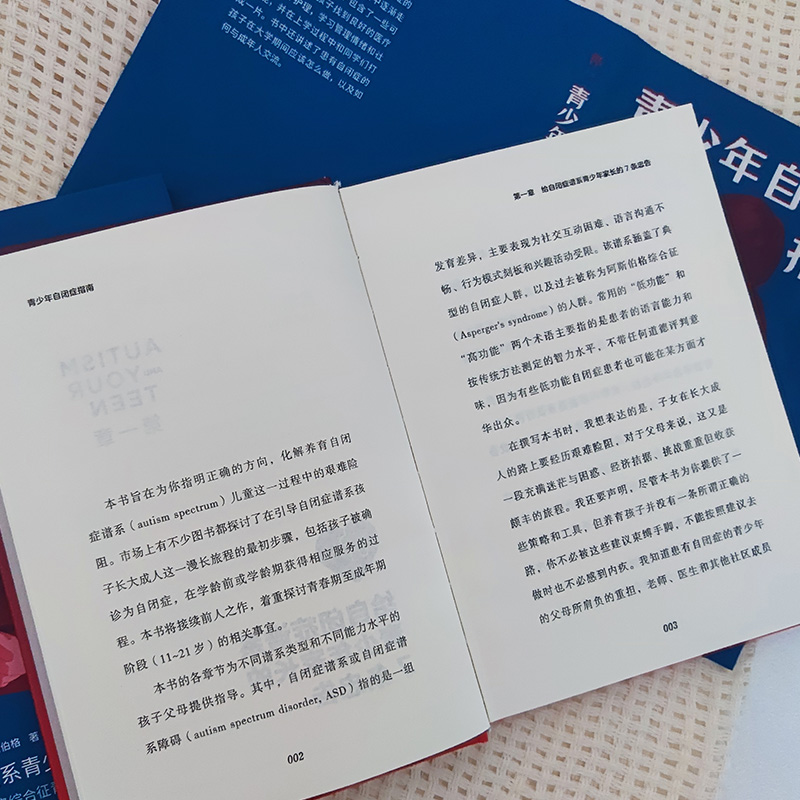 何与成年人交流。
孩子在大学期间应该怎么做，以及如
成一片。书中还讲述了患有自闭症的
青少年自
青少年自闭症指南
本书旨在为你指明正确的方向，化解养育自闭
症谱系（autism spectrum）儿童这一过程中的艰难险
阻。市场上有不少图书都探讨了在引导自闭症谱系孩
子长大成人这一漫长旅程的最初步骤，包括孩子被确
诊为自闭症，在学龄前或学龄期获得相应服务的过
程。本书将接续前人之作，着重探讨青春期至成年期
阶段（11~21 岁）的相关事宜。
本书的各章节为不同谱系类型和不同能力水平的
孩子父母提供指导。其中，自闭症谱系或自闭症谱
系障碍（autism spectrum disorder, ASD）指的是一组
002
第一章 给自闭症谱系青少年家长的 7 条忠告
发育差异，主要表现为社交互动困难、语言沟通不
畅、行为模式刻板和兴趣活动受限。该谱系涵盖了典
型的自闭症人群，以及过去被称为阿斯伯格综合征
（Asperger's syndrome）的人群。常用的“低功能”和
“高功能”两个术语主要指的是患者的语言能力和
按传统方法测定的智力水平，不带任何道德评判意
味，因为有些低功能自闭症患者也可能在某方面才
华出众。
在撰写本书时，我想表达的是，子女在长大成
人的路上要经历艰难险阻，对于父母来说，这又是
一段充满迷茫与困惑、经济拮据、挑战重重但收获
颇丰的旅程。我还要声明，尽管本书为你提供了一
些策略和工具，但养育孩子并没有一条所谓正确的
路，你不必被这些建议束缚手脚，不能按照建议去
做时也不必感到内疚。我知道患有自闭症的青少年
的父母所肩负的重担，老师、医生和其他社区成员
003
伯格 著
系青少
综合征